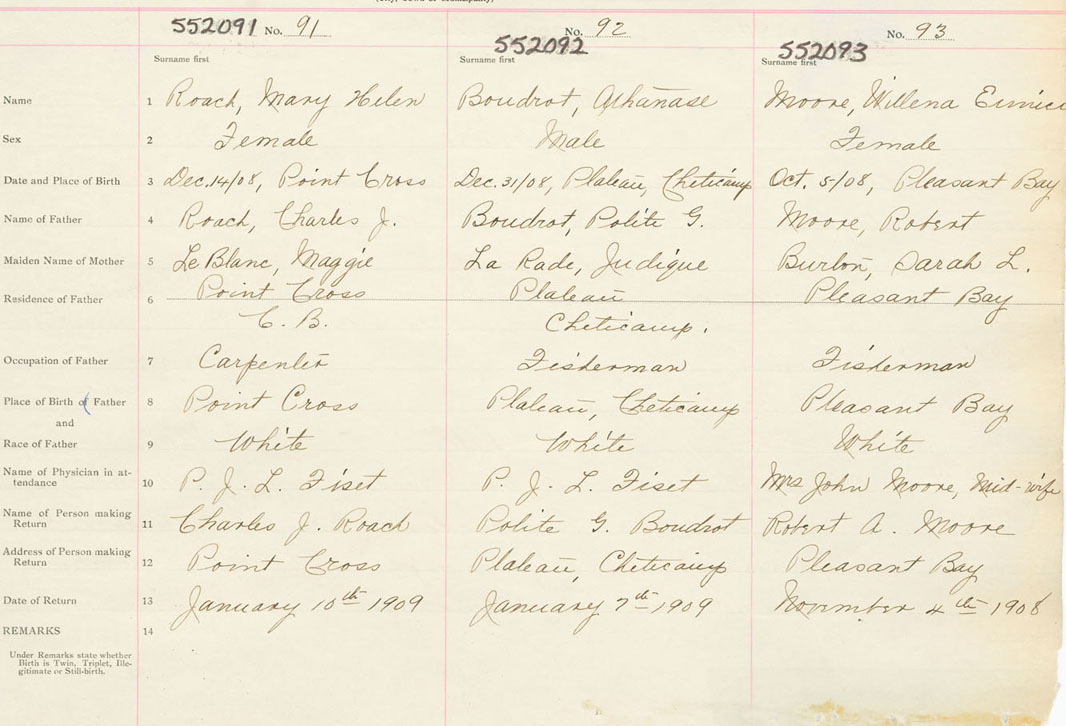 552091 No. 91 552092 No. 92 552093 No. 93
Surname first Surname first Surname first
Name 1 Roach, Mary Helen Boudrot, Athanase Moore, Willena Eunice
Sex 2 Female Male Female
Date and Place of Birth 3 Dec. 14/08, Point Cross Dec. 31/08, Plateau, Cheticamp Oct. 5/08, Pleasant Bay
Name of Father 4 Roach, Charles J. Boudrot, Polite G. Moore, Robert
Maiden Name of Mother 5 Le Blanc, Maggie La Rade, Judique Burton, Sarah L.
Residence of Father 6 Point Cross Plateau Pleasant Bay
C. B. Cheticamp.
Occupation of Father 7 Carpenter Fisherman Fisherman
Place of Birth of Father 8 Point Cross Plateau, Cheticamp Pleasant Bay
and
Race of Father 9 White White White
Name of Physician in at-
tendance 10 P. J. L. Fiset P. J. L. Fiset Mrs John Moore, Mid-wife
Name of Person making
Return 11 Charles J. Roach Polite G. Boudrot Robert A. Moore
Address of Person making
Return 12 Point Cross Plateau, Cheticamp Pleasant Bay
Date of Return 13 January 10th 1909 January 7th 1909 November 4th 1908
REMARKS 14
Under Remarks state whether
Birth is Twin, Triplet, Ille-
gitimate or Still-birth.